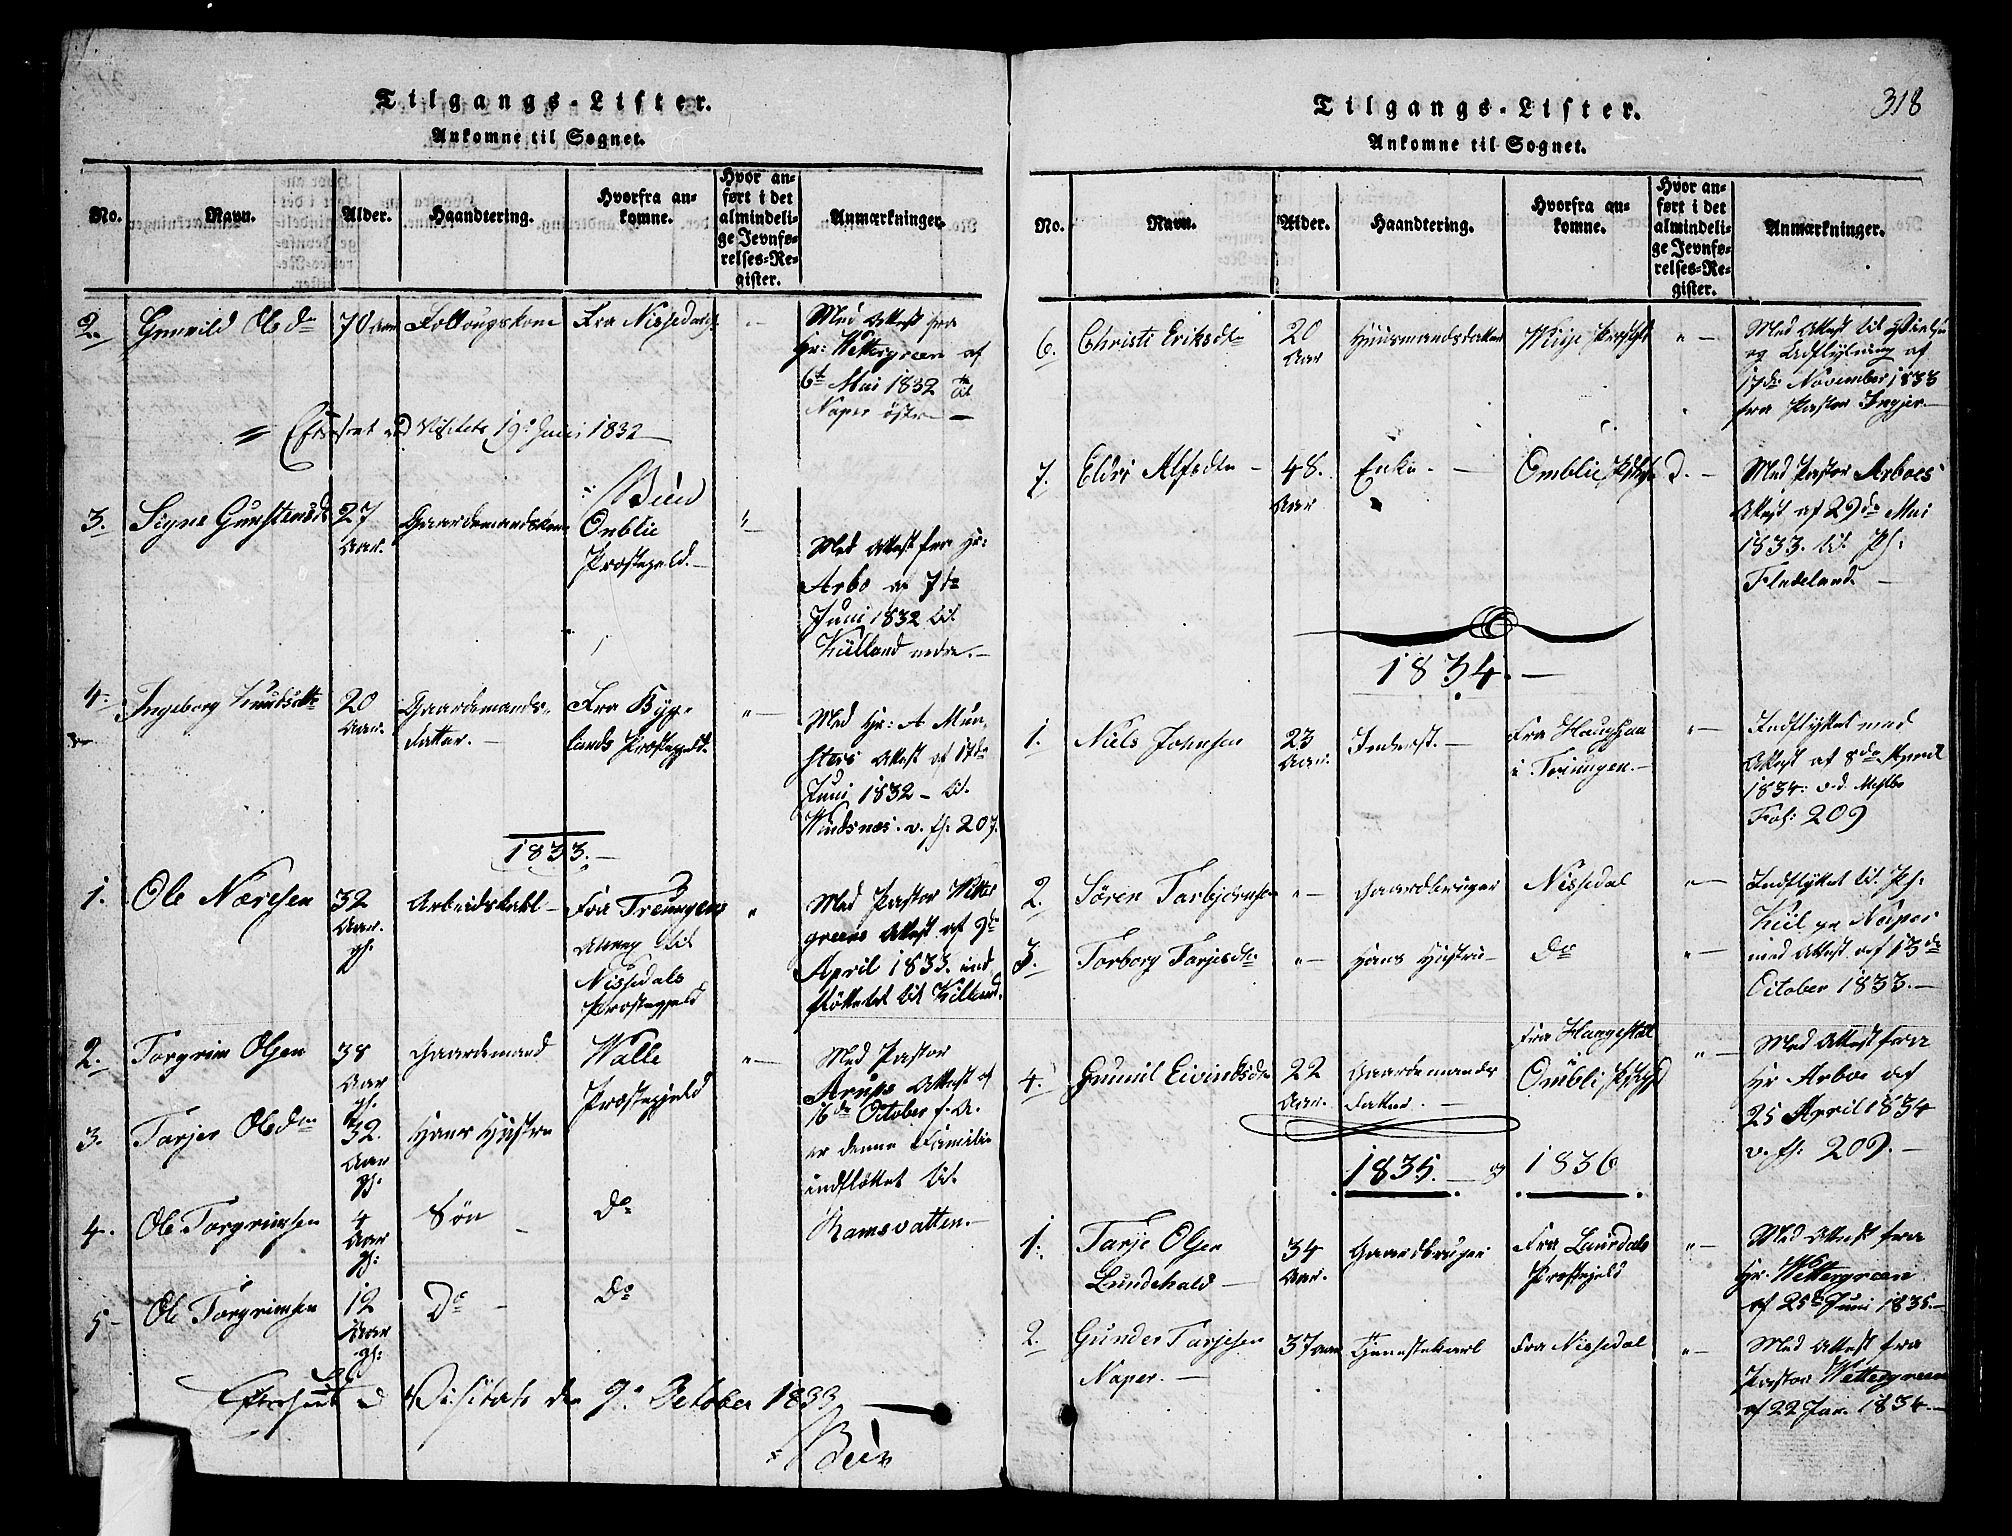 Tilgangs-Lister.
Ankomne til Sognet.
No.
Navn.
Alder.
Haandtering.
Hvorfra an-
komne.
Hvor an-
ført i det
almindeli-
ge Jevnfø-
relses-Re-
gister.
Anmærkninger.
2. Gunvild Olsdr 70 aar Follougskone Fra Nissedal
Med Attest fra
Hr: Wettergreen af
6t Mai 1832 til
Naper østre
Efterseet ved Visitats 19 Juni 1832
Bull
3. Signe Gunstensd 27 Aar. Gaardmandskone Omblie
Præstegjeld.
Med Attest fra Hr:
Arbo af 7de
Juni 1832 til
Kiilland nedre.
4. Ingeborg Knudsdtr 20 Aar. Gaardemands-
datter. Fra Byg-
lands Præstegjeld.
Med Hr: A Mun-
sters Attest af 17de
Juni 1832 til
v. fol: 207.
1833.
1. Ole Næresen 32 Aar. gl. Arbeidskarl Fra Treungens
Annex til
Nissedals
Præstegjeld
Med Pastor Wetter
greens Attest af 9de
April 1833. ind
flöttet til Killand.
2. Torgrim Olsen 38 Aar gl. Gaardmand Walle
Præstegjeld
Med Pastor
Arups Attest af
16de October f. A.
er denne Familie
indflöttet til
Ramsvatten.
3. Tarjer Olsdtr 32. Aar gl. Hans Hustru
4. Ole Torgrimsen 4 Aar gl. Søn Do
5 Ole Torgrimsen 12 Aar gl: Do Do
Efterseet ved Visitats den 9 October 1833
Tilgangs-Lister.
318
Ankomne til Sognet.
No.
Navn.
Alder.
Haandtering.
Hvorfra an-
komne.
Hvor an-
ført i det
almindeli-
ge Jevnfø-
relses-Re-
gister.
Anmærkninger.
6. Christi Eriksdtr 20 Aar Huusmandsdatter
Med Attest til
og Udflytning af
17de November 1833
fra Pastor Inger.
7. Eldri Alfsdtr 48. Aar Enke. Omblie
Med Pastor Arboes
Attest af 29de Mai
1833. til Pl:
Fladeland
1834.
1. Niels Johnsen 23 Aar. Inderst. Fra Haughan
i Treungen.
Indflyttet med
Attest af 8de April
1834.
Fol: 209
2. Sören Tarbjörnsen Gaardbruger Nissedal
Indflyttet til Pl:
Kiil Naper
med Attest af 13de
October 1833.
3. Torborg Tarjesdtr. Hans Hustru Do
4. Gunnil Eivindsdtr 22 Aar. Gaardemands
datter. Fra Haugestøl
Ombli
Med Attest fra
Hr Arboe af
25 April 1834
v. fl: 209.
1835. og 1836
1. Tarje Olsen
Lundehald 34 Aar. Gaardbruger Fra Laurdals
Præstegjeld
Med Attest fra
Hr. Wettergreen
af 25de Juni 1835.
2. Gunder Tarjesen
Naper. 37 aar Tjenestekarl Fra Nissedal
Med Attest fra
Pastor Wettergreen
af 22 Jan. 1834.